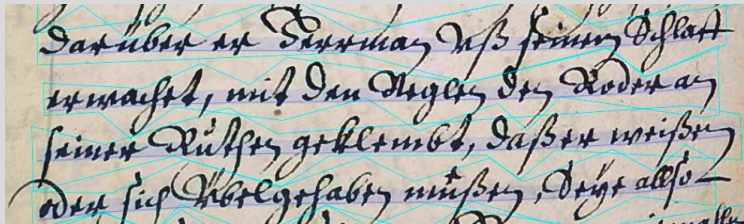 darüber er Herrman uß seinem Schlaff
erwachet, mit den Neglen den Koder an
seiner Ruthen geklembt, daß er weißen
oder sich Übelgehaben müßen, Seye allso